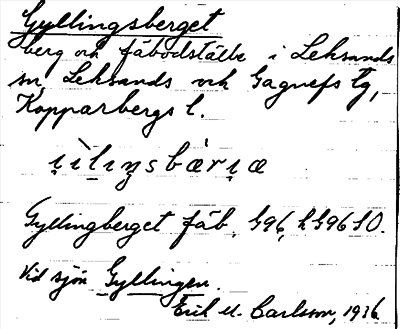 Gyllingsberget
berg och fäbodställe i Leksands
sn, Leksands och Gagnefs tg,
Kopparbergs l.
Gyllingberget fäb.
Vid sjön Gyllingen.
Erik M. Carlsson, 1936